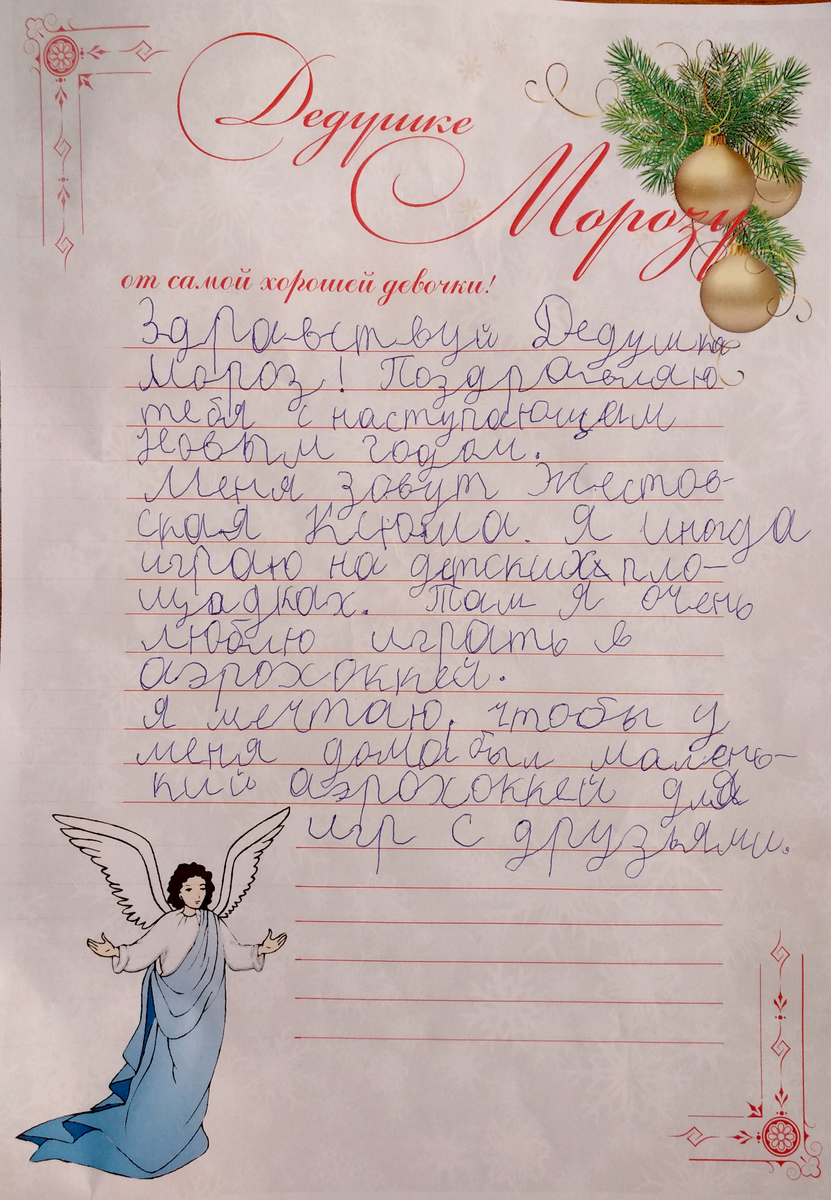 Дедушке
Морозу
от самой хорошей девочки!
Здравствуй Дедушка
Мороз! Поздравляю
тебя с наступающем
новым годом.
Меня зовут Жестов-
ская Ксюша. Я иногда
играю на детских пло-
щадках. Там я очень
люблю играть в
аэрохоккей.
Я мечтаю, чтобы у
меня дома был малень-
кий аэрохоккей для
игр с друзьями.